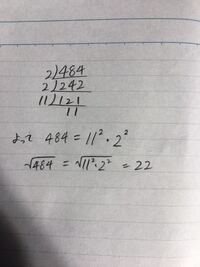 2)484
2)242
11)121
11
よって 484 = 11²・2²
√484 = √11²・2² = 22